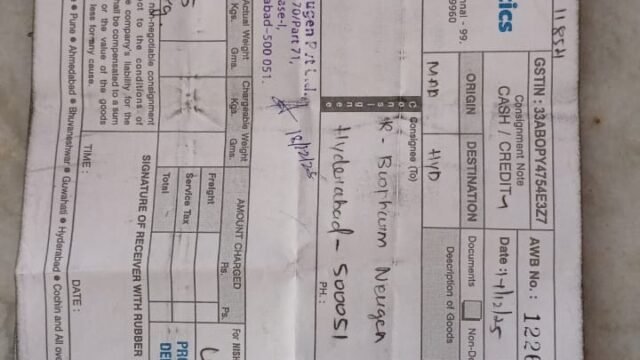 1185H
ics
nnai - 99.
9960
GSTIN : 33ABOPY4754E3Z7
AWB No. : 122
Consignment Note
CASH / CREDIT
Date :
ORIGIN
DESTINATION
Documents
Non-D
MAD
HYD
Description of Goods
Consignee (To)
Biopharm Neugen
Hyderabad - 500051
PH. :
ugen Pvt Ltd
70/Part 71,
ase-I,
abad-500 051.
18/12/25
Actual Weight
Kgs.
Gms.
Chargeable Weight
Kgs.
Gms.
AMOUNT CHARGED
Rs.
Ps.
Freight
Service Tax
Total
For NISH
PRO
DE
non-negotiable consignment
ct to the conditions of
e company's liability for the
hall be compensated to a sum
or the value of the goods
less for any cause.
SIGNATURE OF RECEIVER WITH RUBBER
TIME :
DATE :
Pune ● Ahmedabad ● Bhuvaneshwar ● Guwahati ● Hyderabad ● Cochin and All ove